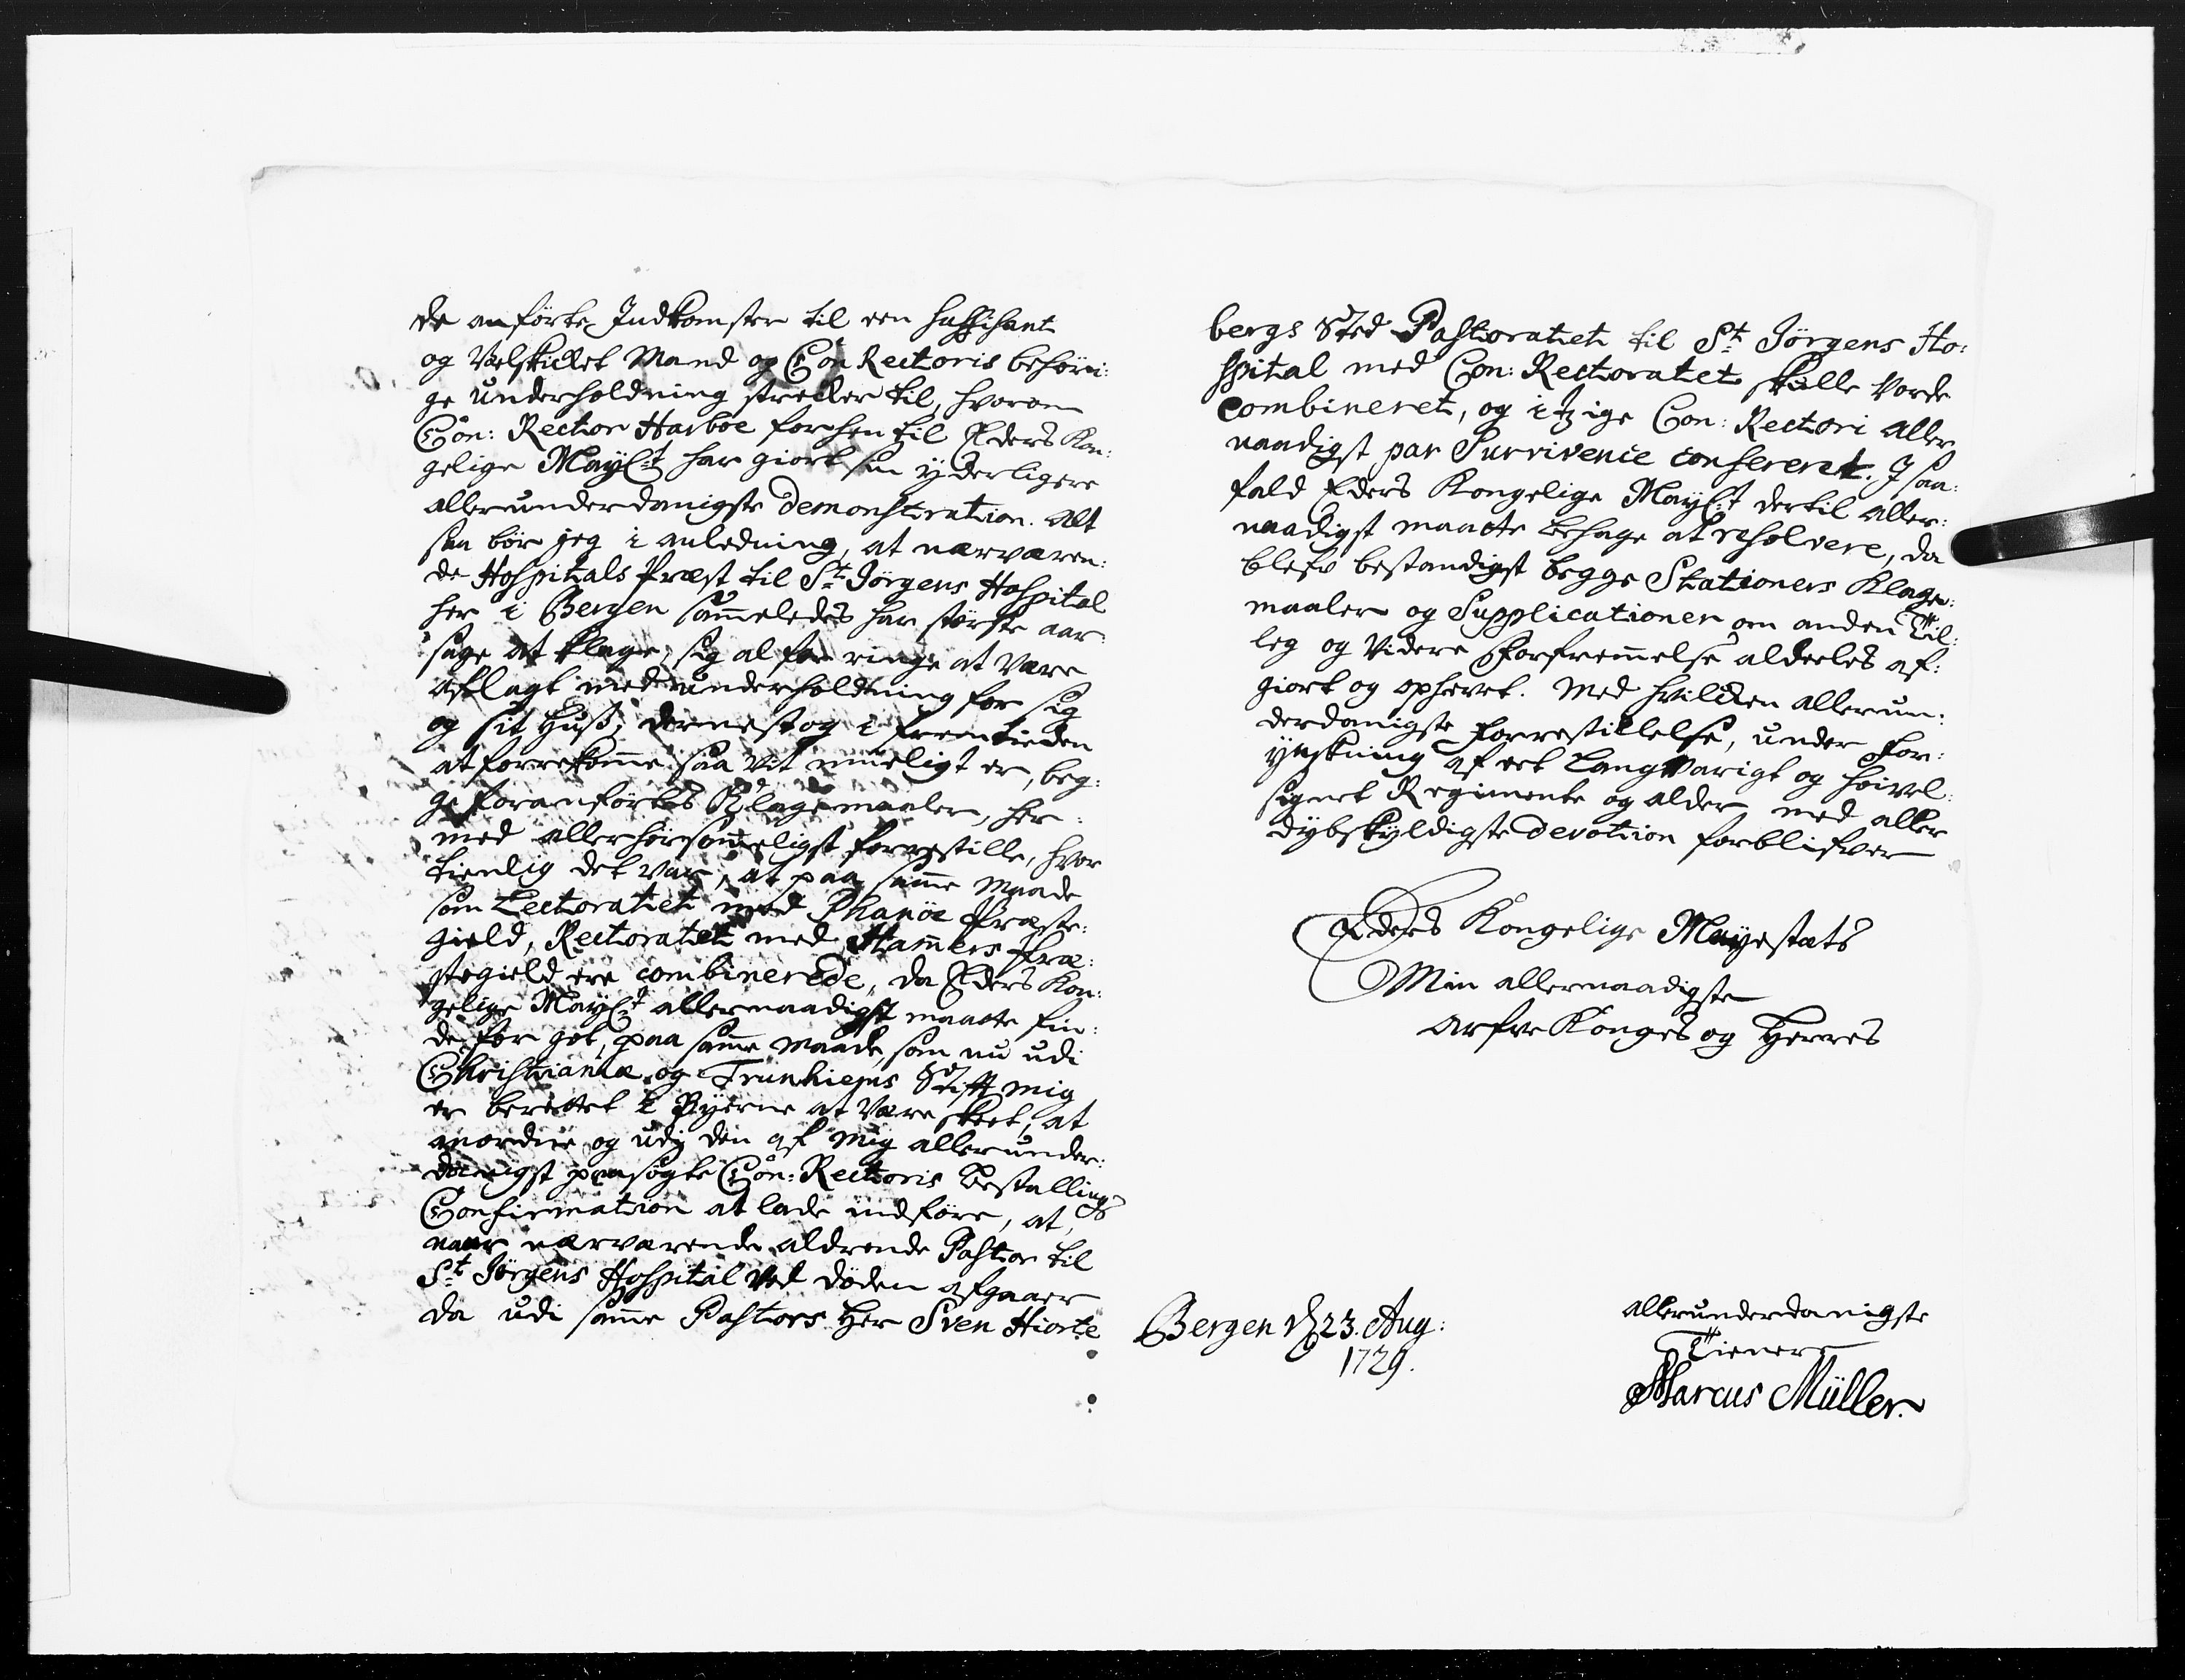 de anförte Indkomster til een suffisant
og Velskicket Mand og Con Rectoris behöri:
ge underholdning strecker til, hvorom
Con: Rector Harboe forhen til Eders Kon:
gelige Mayst. har giort sin yderligere
allerunderdanigste demonstration. Alt
saa bör jeg i anledning, at nærværen:
de Hospitals Præst til St Jörgens Hospital
her i Bergen sammeledes har störste aar
sage at klage, sig al for ringe at være
aflagt med underholdning for sig
og sit Huus, dernest og i fremtiden
at forrekomme saa vit mueligt er, beg:
ge foranförtes Klagemaaler, her:
med allerhörsommeligst forrestille, hvor
tienlig det var, at paa samme Maade
som Lectoratiet med Phanöe Præste:
gield, Rectoratet med Hammers Præ:
stegield ere combinerede, da Eders Kon:
gelige Mayst. allernaadigst maatte fin:
de for got, paa samme Maade, som nu udi
Christianiæ og Trunhiems Stifft mig
er berettet i Byerne at være skeet, at
anordne og udj den af mig allerunder:
danigst paasögte Con: Rectoris Bestallings
Confirmation at lade indföre, at,
naar nærværende aldrende Pastor til
St Jörgens Hospital ved döden afgaaer
da udi samme Pastors Her Sven Hiorte
bergs Sted Pastoratiet til St Jörgens Ho:
spital med Con: Rectoratet skulle vorde
combineret, og itzige Con: Rectori aller
naadigst par Survivence confereret. J saa:
fald Eders Kongelige Mayst. dertil aller:
naadigst maatte behage at resolvere, da
blefv bestandigst begge Stationers Klage:
maaler og Supplicationer om anden Til:
leg og videre Forfremmelse aldeeles af:
giort og ophevet. Med hvilcken allerun:
derdanigste forrestillelse, under For:
ynskning af eet Langvarigt og höivel:
signet Regimente og alder med aller
dybskyldigste devotion forblifver
Eders Kongelige Mayestæts
Min allernaadigste
Arfve Konges og Herres
Bergen d 23. Aug:
1729.
allerunderdanigste
Tienere
Marcus Müller.